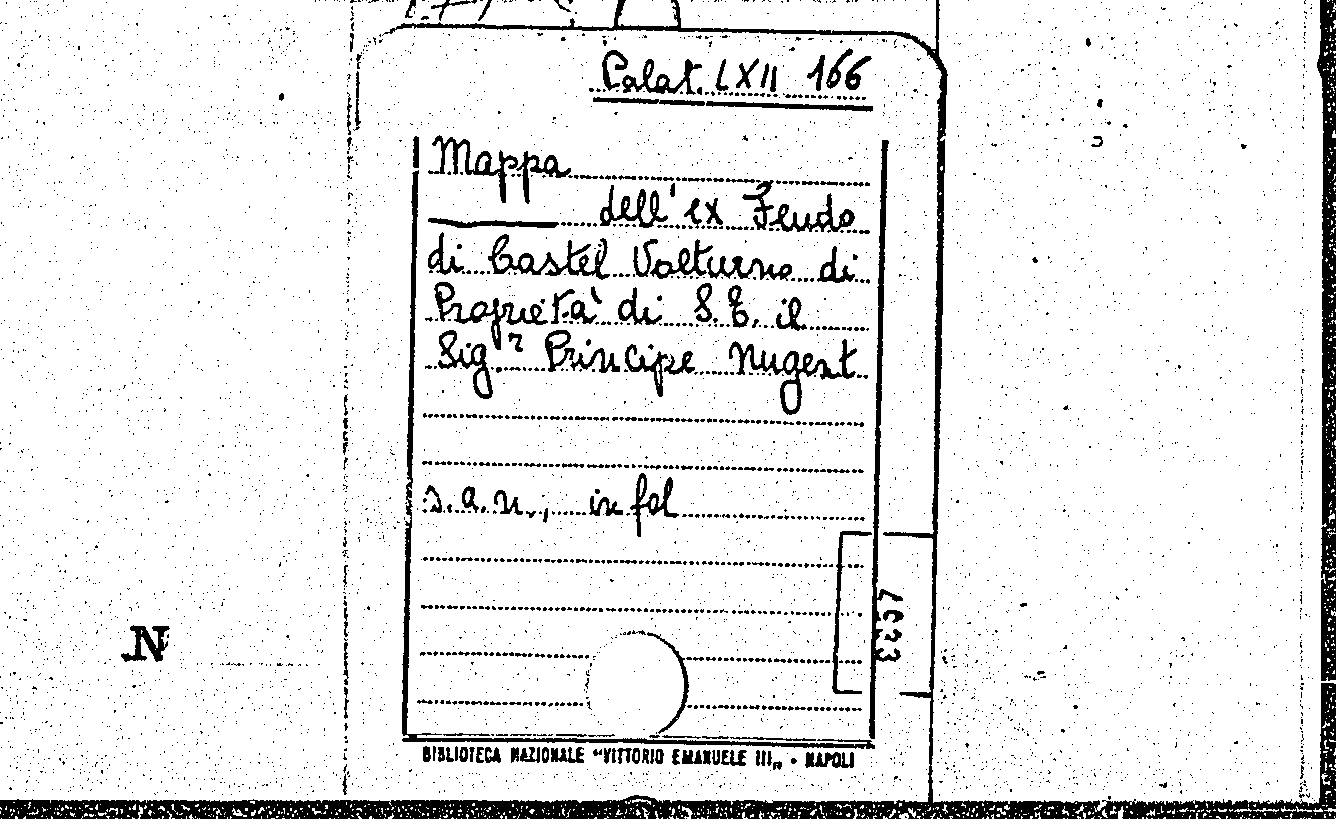 Palat. LXII 166
Mappa
dell'ex Feudo
di Castel Volturno di
Proprietà di S.E. il
Sig.r Principe Nugent
s.a.n., in fol
7633
N
BIBLIOTECA NAZIONALE "VITTORIO EMANUELE III„ - NAPOLI